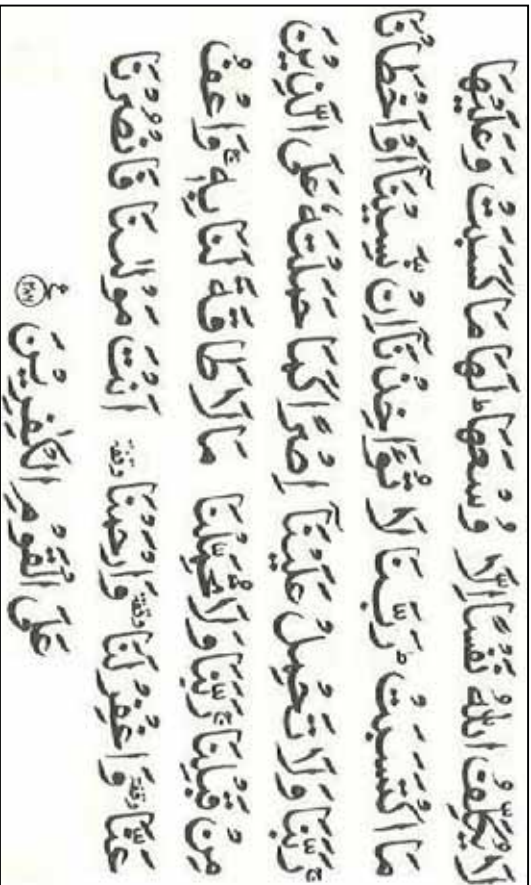 لَا يُكَلِّفُ اللّٰهُ نَفْسًا اِلَّا وُسْعَهَا ؕ لَهَا مَا كَسَبَتْ وَعَلَيْهَا
مَا اكْتَسَبَتْ ؕ رَبَّنَا لَا تُؤَاخِذْنَآ اِنْ نَّسِيْنَآ اَوْ اَخْطَاْنَا
ۚ رَبَّنَا وَلَا تَحْمِلْ عَلَيْنَآ اِصْرًا كَمَا حَمَلْتَهٗ عَلَى الَّذِيْنَ
مِنْ قَبْلِنَا ۚ رَبَّنَا وَلَا تُحَمِّلْنَا مَا لَا طَاقَةَ لَنَا بِهٖ ۚ وَاعْفُ
عَنَّا وقفة وَاغْفِرْ لَنَا وقفة وَارْحَمْنَا وقفة اَنْتَ مَوْلٰىنَا فَانْصُرْنَا
عَلَى الْقَوْمِ الْكٰفِرِيْنَ